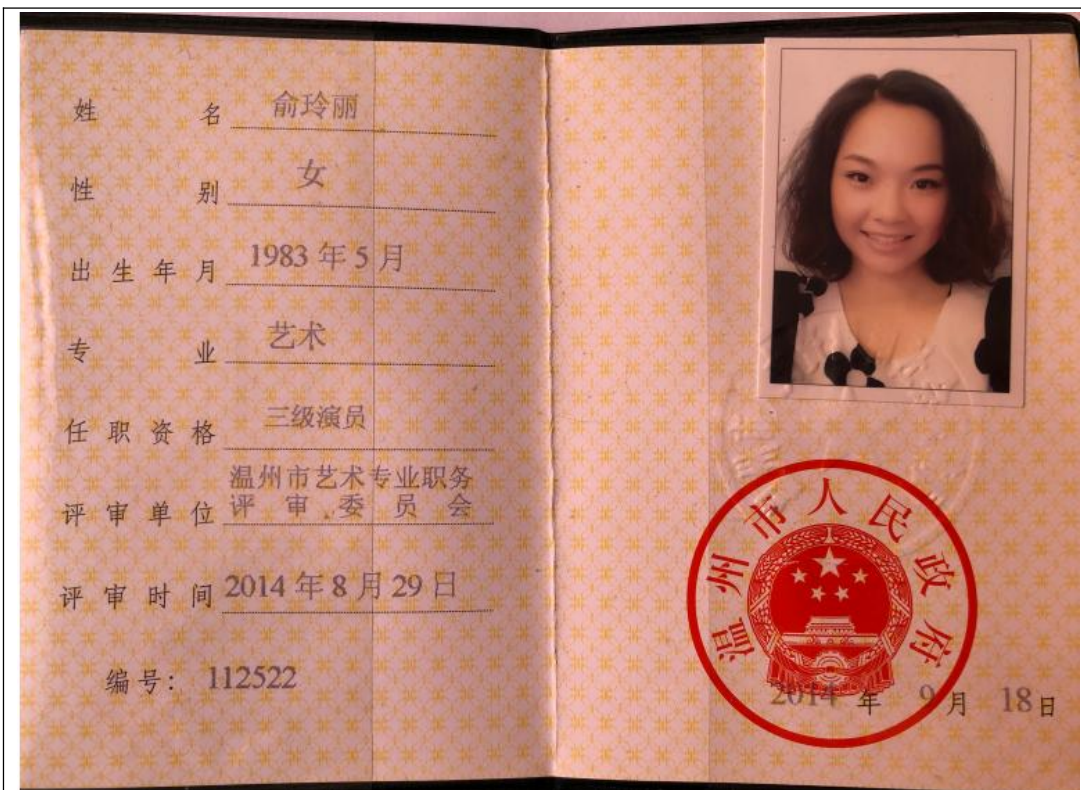 姓名 俞玲丽
性别 女
出生年月 1983年5月
专业 艺术
任职资格 三级演员
温州市艺术专业职务
评审单位 评审委员会
评审时间 2014年8月29日
编号: 112522
温州市人民政府
2014年9月18日